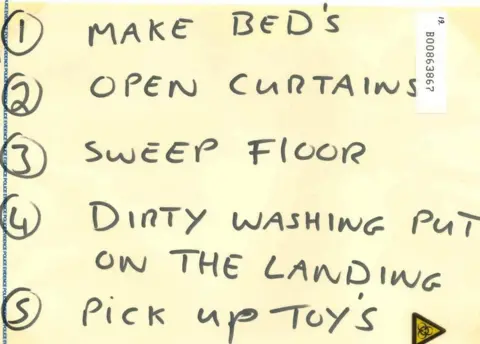 ① MAKE BED's
② OPEN CURTAINS
③ SWEEP FlOOR
④ DIRTY WASHING PUT
ON THE LANDING
⑤ PicK up TOY's
19.
B00863867